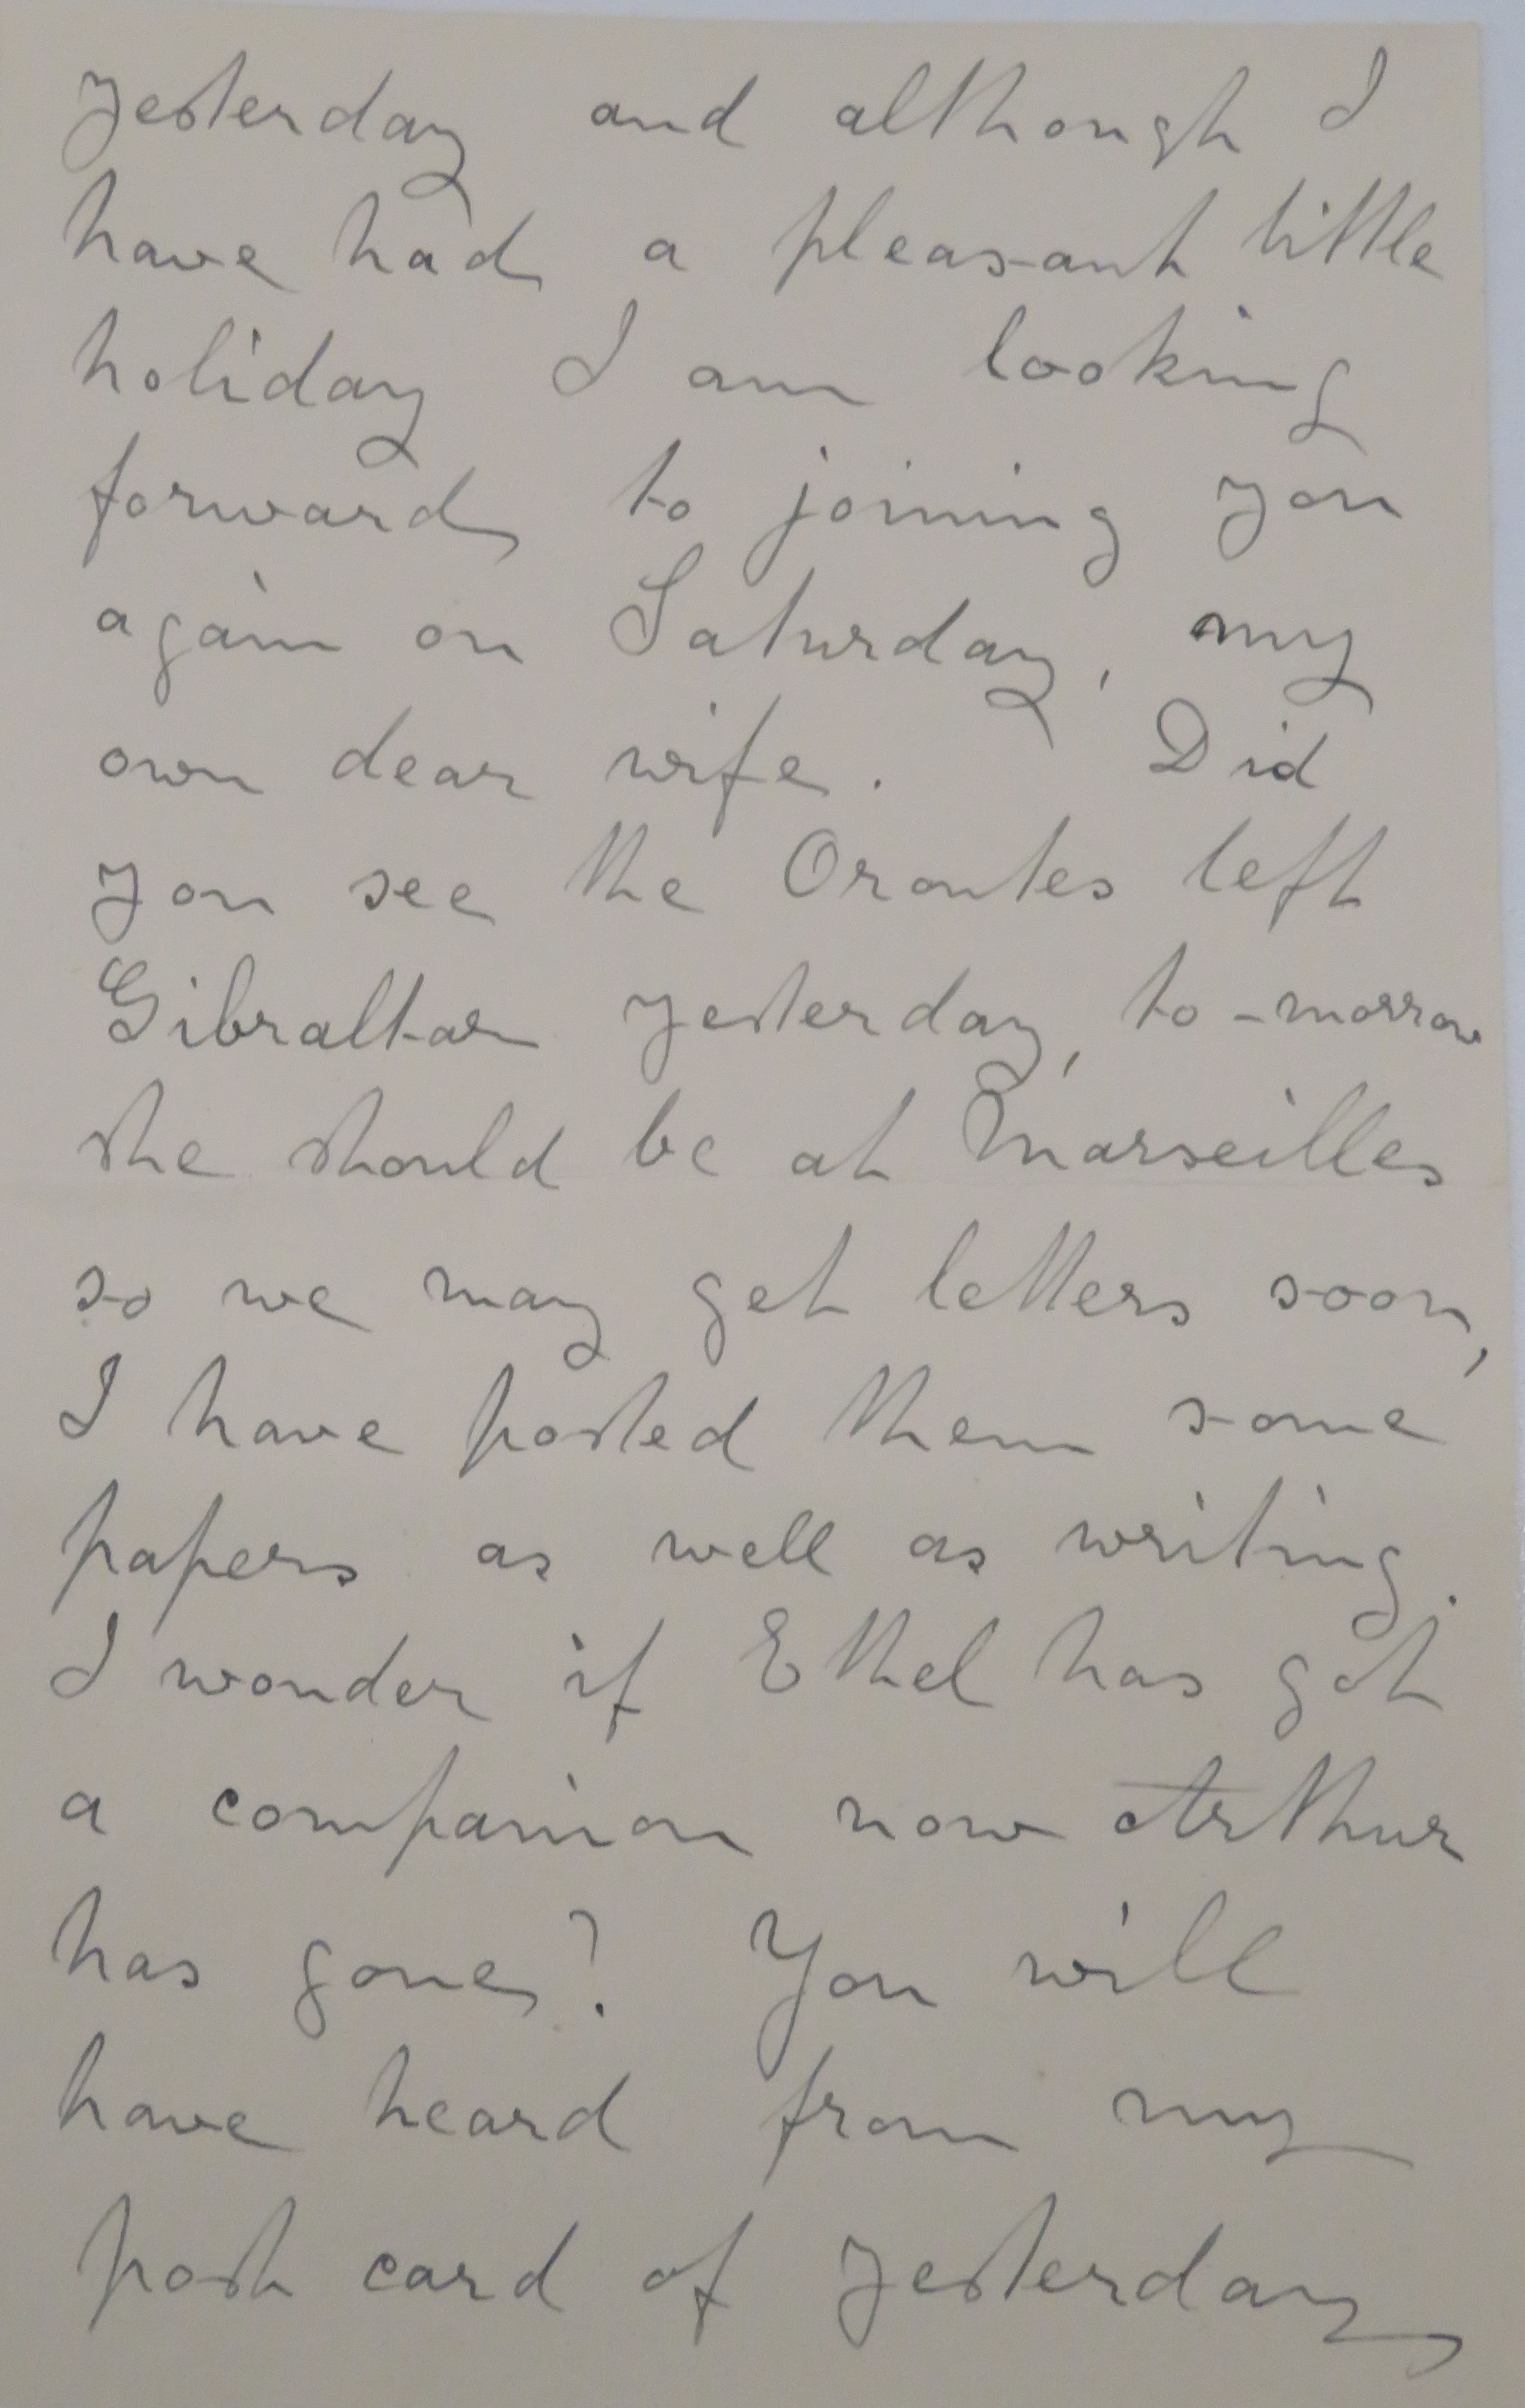 yesterday and although I
have had a pleasant little
holiday I am looking
forward to joining you
again on Saturday, my
own dear wife. Did
you see the Orontes left
Gibraltar yesterday, to-morrow
she should be at Marseilles
so we may get letters soon,
I have posted them some
papers as well as writing.
I wonder if Ethel has got
a companion now Arthur
has gone? You will
have heard from my
post card of yesterday